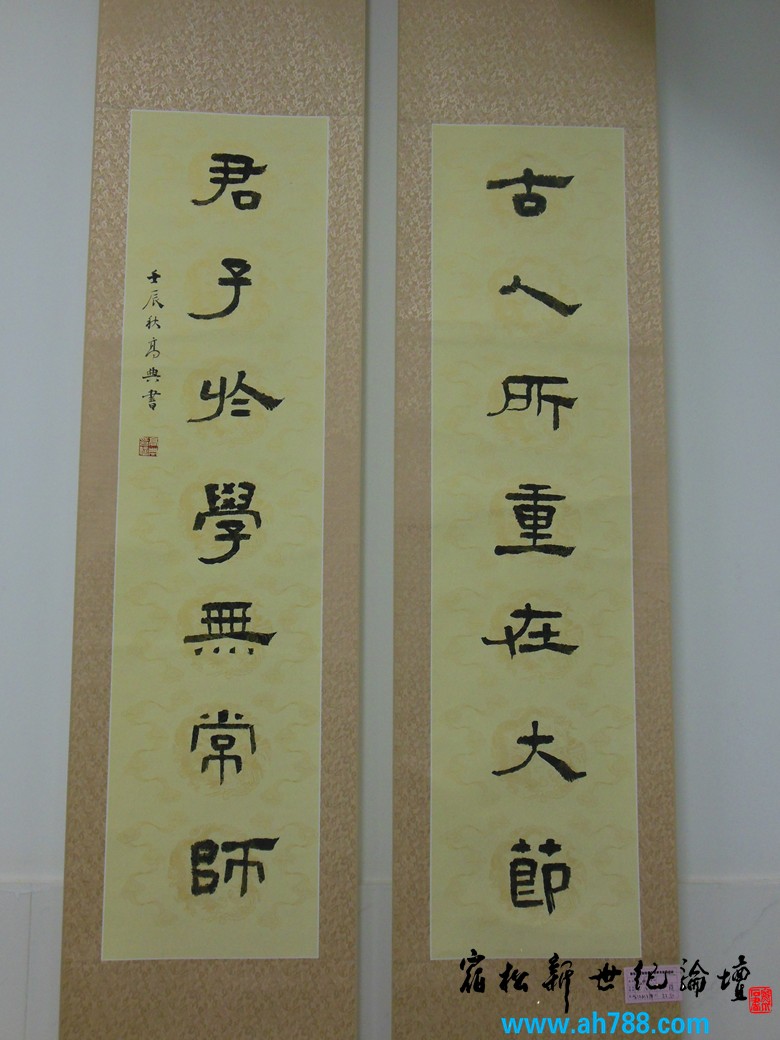 古人所重在大節
君子於學無常師
壬辰秋高典書
宿松新世紀論壇
www.ah788.com